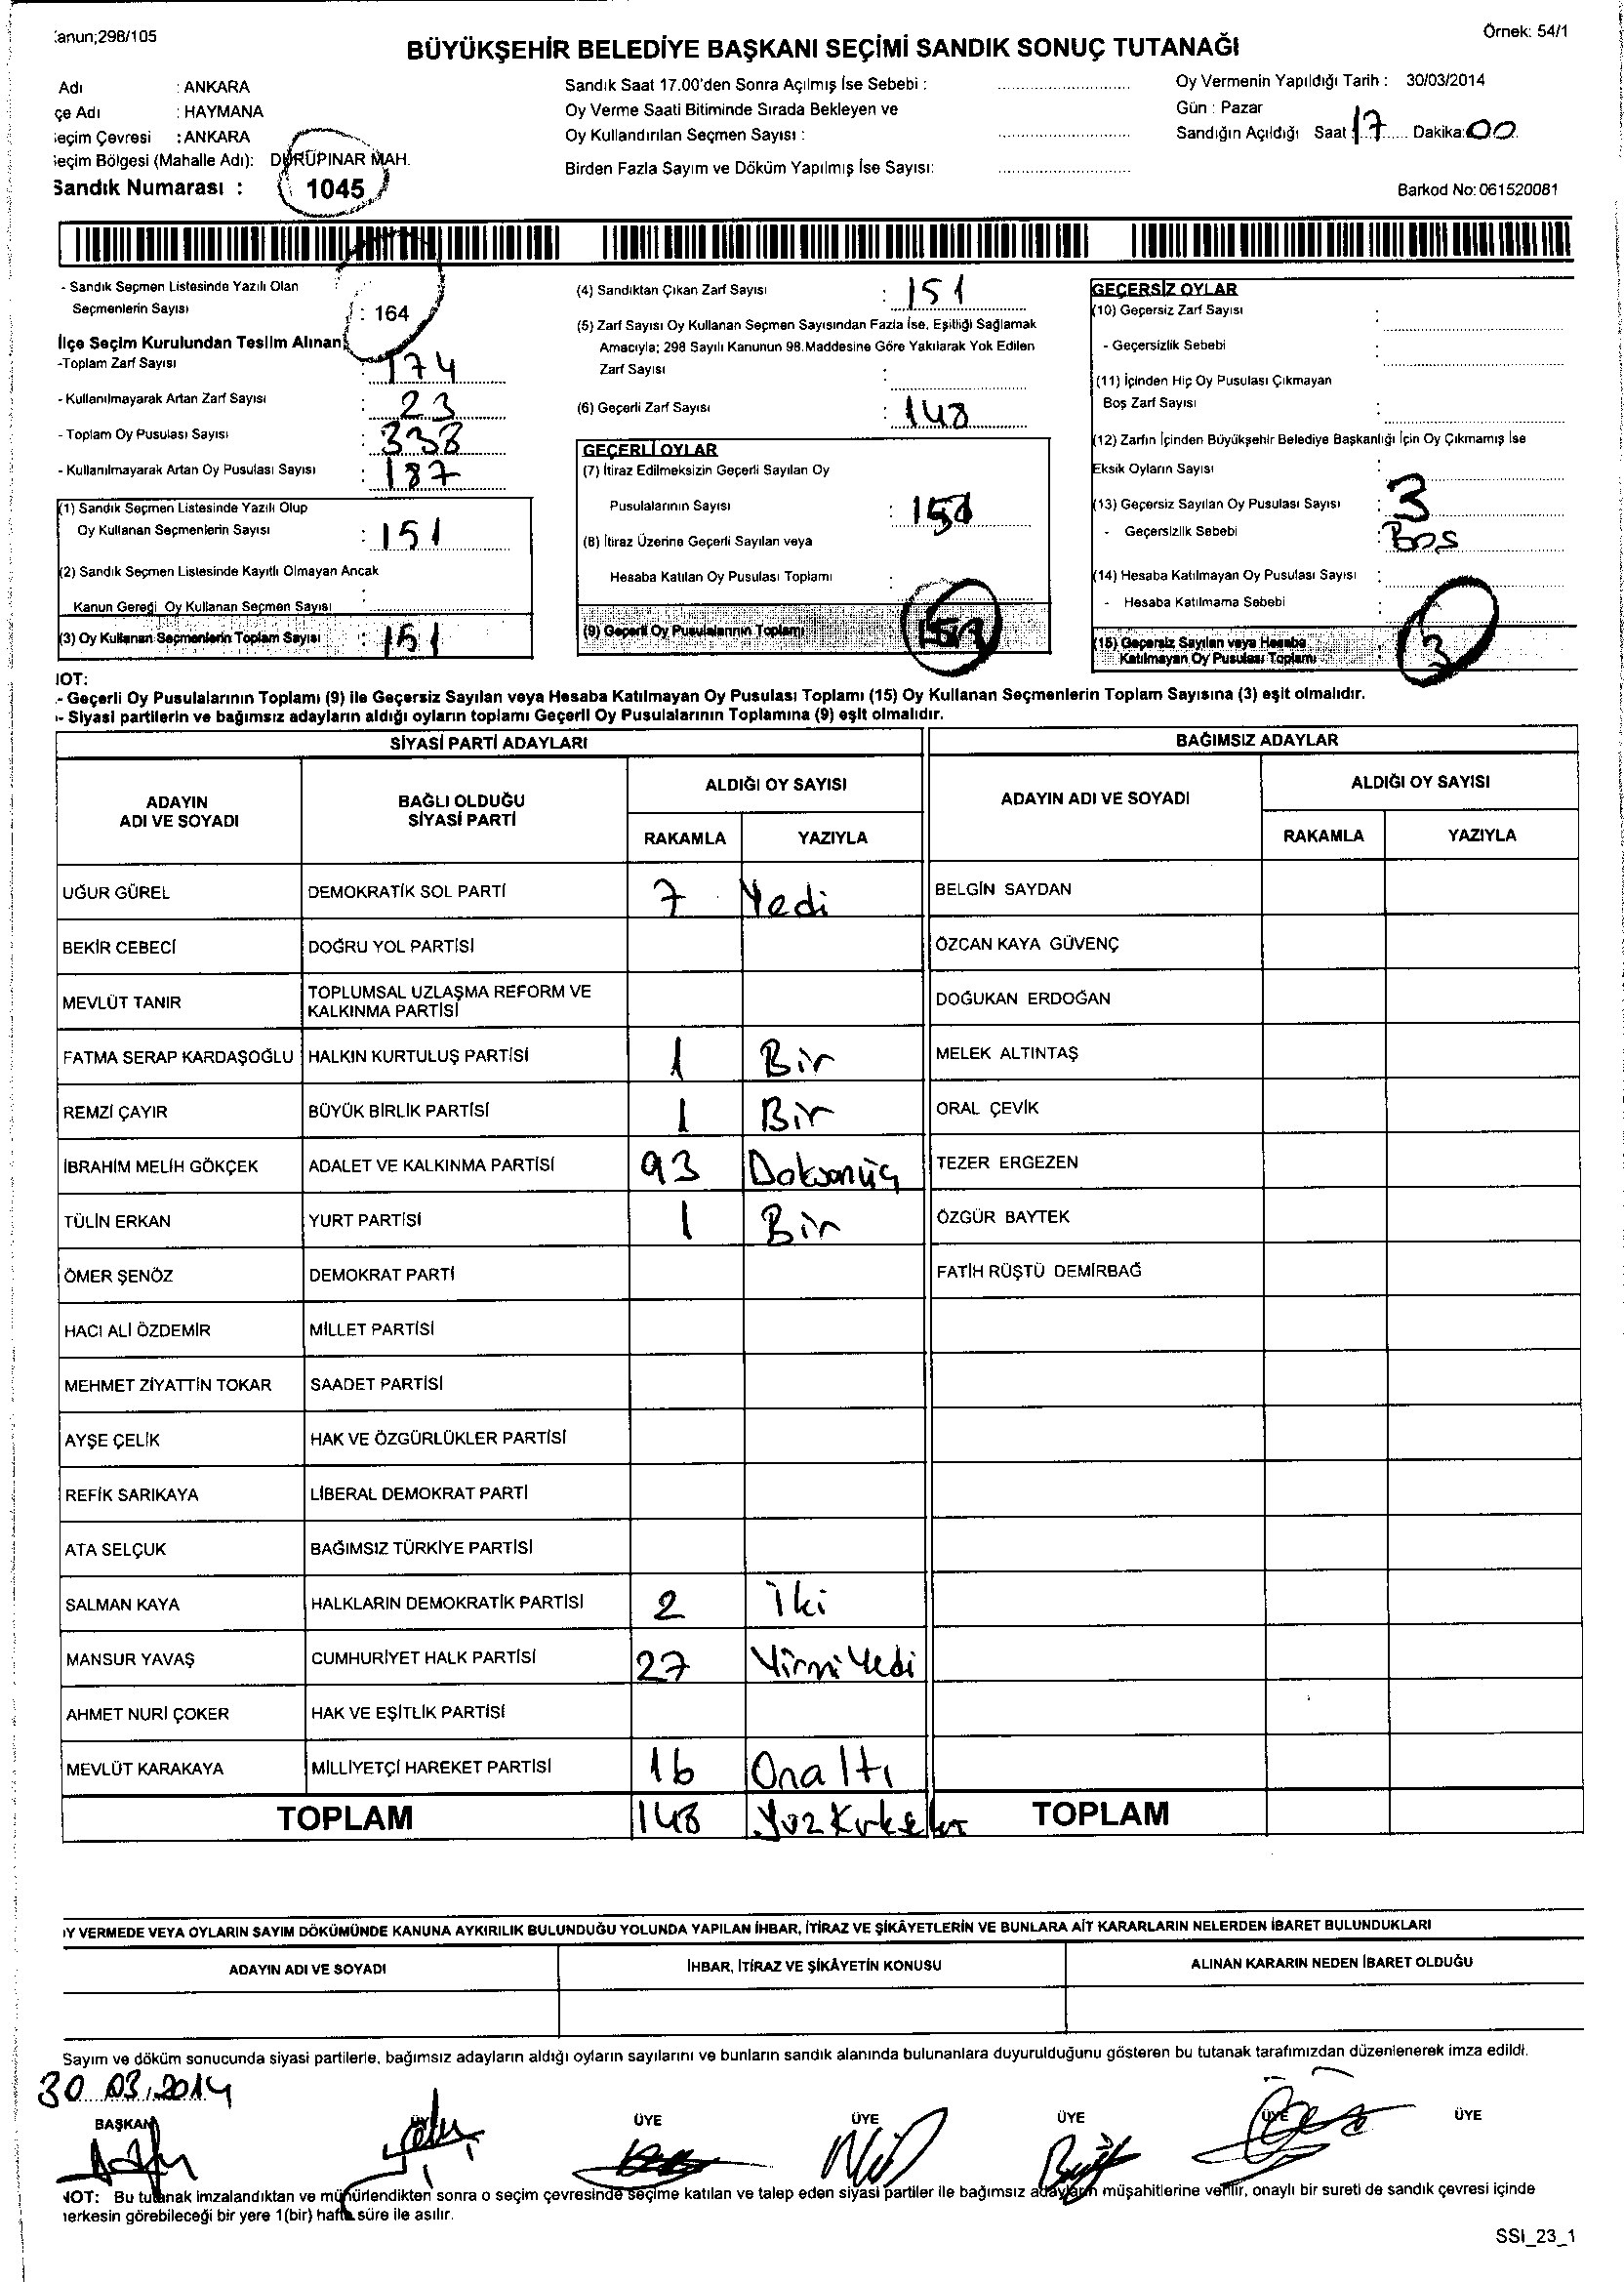 anun;298/105
Örnek: 54/1
BÜYÜKŞEHİR BELEDİYE BAŞKANI SEÇİMİ SANDIK SONUÇ TUTANAĞI
Adı : ANKARA
çe Adı : HAYMANA
eçim Çevresi : ANKARA
eçim Bölgesi (Mahalle Adı): DURUPINAR MAH.
Sandık Numarası : 1045
Sandık Saat 17.00'den Sonra Açılmış İse Sebebi :
Oy Verme Saati Bitiminde Sırada Bekleyen ve
Oy Kullandırılan Seçmen Sayısı :
Birden Fazla Sayım ve Döküm Yapılmış İse Sayısı:
Oy Vermenin Yapıldığı Tarih : 30/03/2014
Gün : Pazar
Sandığın Açıldığı Saat 17 Dakika: 00
Barkod No: 061520081
- Sandık Seçmen Listesinde Yazılı Olan
Seçmenlerin Sayısı : 164
İlçe Seçim Kurulundan Teslim Alınan
-Toplam Zarf Sayısı : 174
- Kullanılmayarak Artan Zarf Sayısı : 23
- Toplam Oy Pusulası Sayısı : 338
- Kullanılmayarak Artan Oy Pusulası Sayısı : 187
(1) Sandık Seçmen Listesinde Yazılı Olup
Oy Kullanan Seçmenlerin Sayısı : 151
(2) Sandık Seçmen Listesinde Kayıtlı Olmayan Ancak
Kanun Gereği Oy Kullanan Seçmen Sayısı :
(3) Oy Kullanan Seçmenlerin Toplam Sayısı : 151
(4) Sandıktan Çıkan Zarf Sayısı : 151
(5) Zarf Sayısı Oy Kullanan Seçmen Sayısından Fazla İse, Eşitliği Sağlamak
Amacıyla; 298 Sayılı Kanunun 98.Maddesine Göre Yakılarak Yok Edilen
Zarf Sayısı :
(6) Geçerli Zarf Sayısı : 148
GEÇERLİ OYLAR
(7) İtiraz Edilmeksizin Geçerli Sayılan Oy
Pusulalarının Sayısı :
(8) İtiraz Üzerine Geçerli Sayılan veya
Hesaba Katılan Oy Pusulası Toplamı :
(9) Geçerli Oy Pusulalarının Toplamı
GEÇERSİZ OYLAR
(10) Geçersiz Zarf Sayısı :
- Geçersizlik Sebebi :
(11) İçinden Hiç Oy Pusulası Çıkmayan
Boş Zarf Sayısı :
(12) Zarfın İçinden Büyükşehir Belediye Başkanlığı İçin Oy Çıkmamış İse
Eksik Oyların Sayısı :
(13) Geçersiz Sayılan Oy Pusulası Sayısı : 3
- Geçersizlik Sebebi : Bos
(14) Hesaba Katılmayan Oy Pusulası Sayısı :
- Hesaba Katılmama Sebebi :
(15) Geçersiz Sayılan veya Hesaba
Katılmayan Oy Pusulası Toplamı : 3
NOT:
- Geçerli Oy Pusulalarının Toplamı (9) ile Geçersiz Sayılan veya Hesaba Katılmayan Oy Pusulası Toplamı (15) Oy Kullanan Seçmenlerin Toplam Sayısına (3) eşit olmalıdır.
- Siyasi partilerin ve bağımsız adayların aldığı oyların toplamı Geçerli Oy Pusulalarının Toplamına (9) eşit olmalıdır.
SİYASİ PARTİ ADAYLARI
BAĞIMSIZ ADAYLAR
ADAYIN ADI VE SOYADI
BAĞLI OLDUĞU SİYASİ PARTİ
ALDIĞI OY SAYISI
RAKAMLA YAZIYLA
ADAYIN ADI VE SOYADI
ALDIĞI OY SAYISI
RAKAMLA YAZIYLA
UĞUR GÜREL DEMOKRATİK SOL PARTİ 7 Yedi BELGİN SAYDAN
BEKİR CEBECİ DOĞRU YOL PARTİSİ ÖZCAN KAYA GÜVENÇ
MEVLÜT TANIR TOPLUMSAL UZLAŞMA REFORM VE KALKINMA PARTİSİ DOĞUKAN ERDOĞAN
FATMA SERAP KARDAŞOĞLU HALKIN KURTULUŞ PARTİSİ 1 Bir MELEK ALTINTAŞ
REMZİ ÇAYIR BÜYÜK BİRLİK PARTİSİ 1 Bir ORAL ÇEVİK
İBRAHİM MELİH GÖKÇEK ADALET VE KALKINMA PARTİSİ 93 Doksanüç TEZER ERGEZEN
TÜLİN ERKAN YURT PARTİSİ 1 Bir ÖZGÜR BAYTEK
ÖMER ŞENÖZ DEMOKRAT PARTİ FATİH RÜŞTÜ DEMİRBAĞ
HACI ALİ ÖZDEMİR MİLLET PARTİSİ
MEHMET ZİYATTİN TOKAR SAADET PARTİSİ
AYŞE ÇELİK HAK VE ÖZGÜRLÜKLER PARTİSİ
REFİK SARIKAYA LİBERAL DEMOKRAT PARTİ
ATA SELÇUK BAĞIMSIZ TÜRKİYE PARTİSİ
SALMAN KAYA HALKLARIN DEMOKRATİK PARTİSİ 2 İki
MANSUR YAVAŞ CUMHURİYET HALK PARTİSİ 27 YirmiYedi
AHMET NURİ ÇOKER HAK VE EŞİTLİK PARTİSİ
MEVLÜT KARAKAYA MİLLİYETÇİ HAREKET PARTİSİ 16 Onaltı
TOPLAM 148 TOPLAM
Y VERMEDE VEYA OYLARIN SAYIM DÖKÜMÜNDE KANUNA AYKIRILIK BULUNDUĞU YOLUNDA YAPILAN İHBAR, İTİRAZ VE ŞİKÂYETLERİN VE BUNLARA AİT KARARLARIN NELERDEN İBARET BULUNDUKLARI
ADAYIN ADI VE SOYADI İHBAR, İTİRAZ VE ŞİKÂYETİN KONUSU ALINAN KARARIN NEDEN İBARET OLDUĞU
Sayım ve döküm sonucunda siyasi partilerle, bağımsız adayların aldığı oyların sayılarını ve bunların sandık alanında bulunanlara duyurulduğunu gösteren bu tutanak tarafımızdan düzenlenerek imza edildi.
30.03.2014
BAŞKAN ÜYE ÜYE ÜYE ÜYE ÜYE ÜYE
NOT: Bu tutanak imzalandıktan ve mühürlendikten sonra o seçim çevresinde seçime katılan ve talep eden siyasi partiler ile bağımsız adayların müşahitlerine verilir, onaylı bir sureti de sandık çevresi içinde
herkesin görebileceği bir yere 1(bir) hafta süre ile asılır.
SSI_23_1